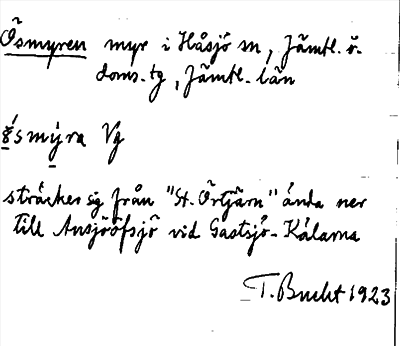 Ösmyren myr i Håsjö sn, Jämtl. ö.
doms.tg, Jämtl. län
ö́smy̱ra Vg
sträcker sig från "St. Örtjärn" ända ner
till Ansjööfsjö vid Gastsjö-Kälarna
T. Bucht 1923